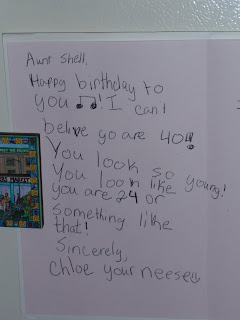 Aunt Shell,
Happy birthday to
you ♫♪! I can't
belive yo are 40!
You look so young!
You look like
you are 24 or
something like
that!
Sincerely,
Chloe your neese☺
MARKET